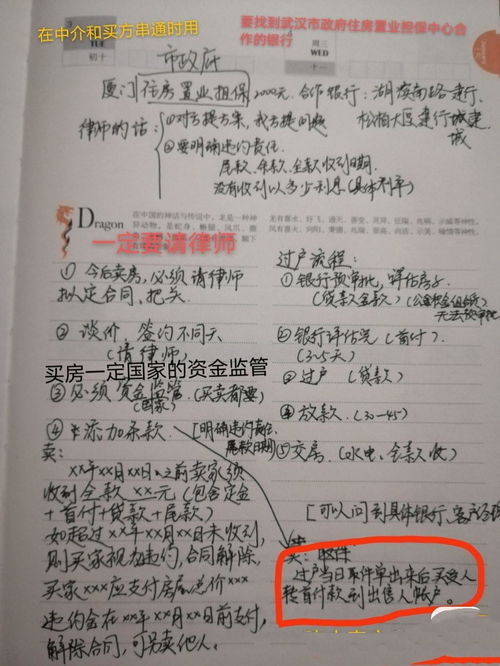 在中介和买方串通时用
要找到武汉市政府住房置业担保中心合
作的银行
TUE
初十
周三
WED
十一
市政府
厦门住房置业担保2000元.合作银行:湖滨南路建行.
律师的话:
①对方提方案,我方提问题
松柏大厦建行城建
②要明确违约责任.
尾款、余款、全款收到日期.
没有收到以多少利息(具体利率)
Dragon
在中国的神话与传说中,龙是一种神
异动物,是蛇身、蜥腿、
一定要请律师
①今后卖房,必须请律师
拟定合同,把关.
②谈价,签约不同天
(请律师)
买房一定国家的资金监管
③必须资金监管.(买卖都要)
(国家)
④添加条款.[明确违约责任,
尾款日期]
卖:
xx年xx月xx日之前卖家须
收到全款xx元(包含定金
+首付+贷款+尾款)
如超过xx年xx月xx日未收到,
则买家视为违约,合同解除,
买家xxx应支付房屋总价xxx
违约金在xx年xx月xx日前支付,
解除合同,可另卖他人.
过户流程:
①银行预审批,评估房子.
(贷款金款)(公积金组合贷
无法预审批)
②银行评估完(首付).
(3-5天)
③过户(贷款)
④放款.(30-45)
⑤交房.(水电、全款收)
[可以问到具体银行、客户经理
买:取件
过户当日取件单出来后买受人
转首付款到出售人帐户。